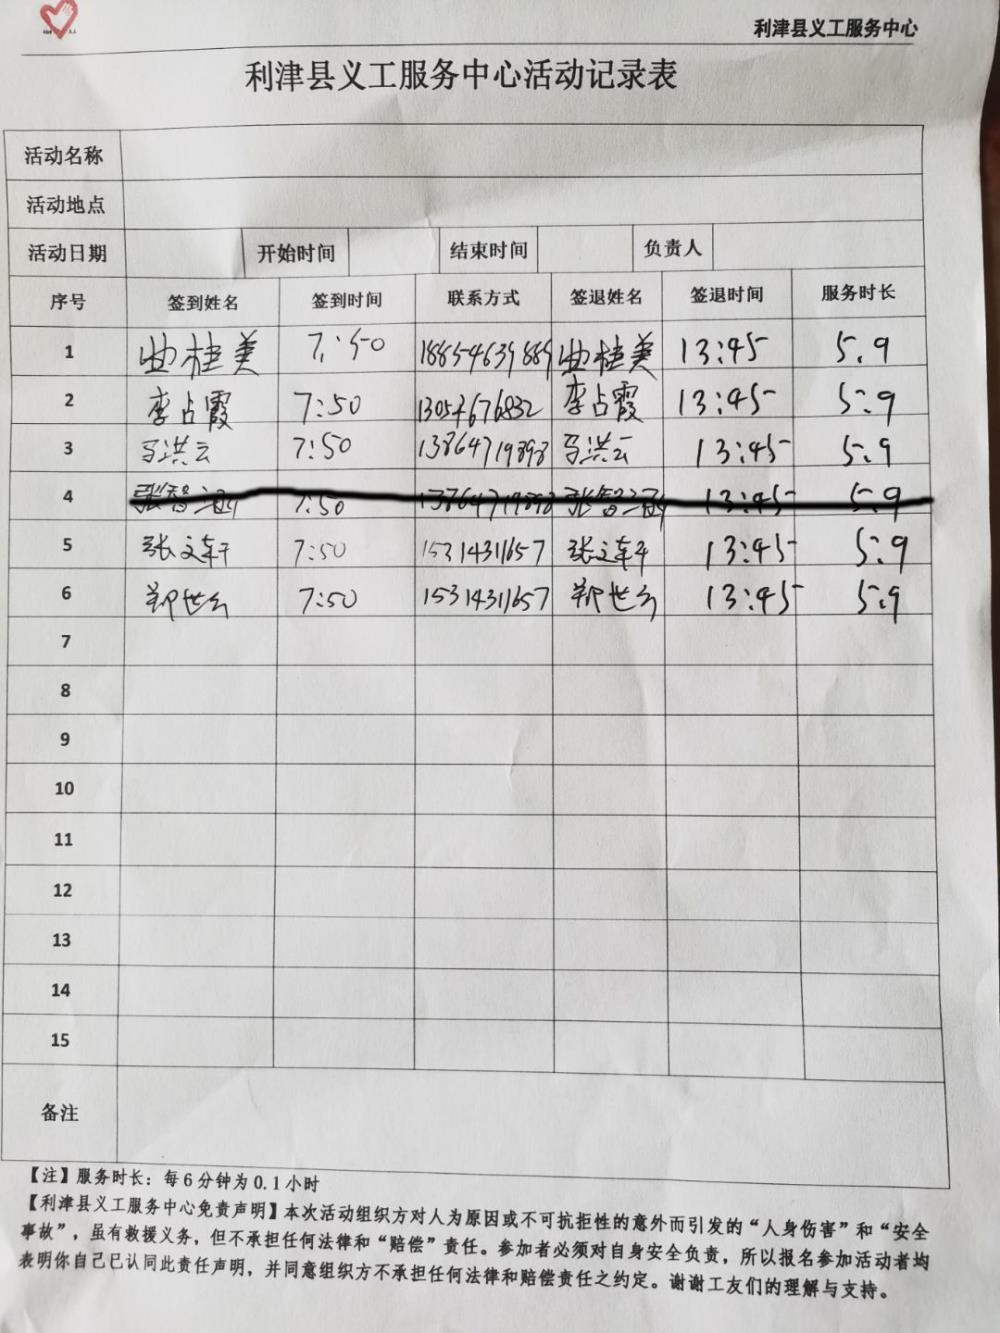 利津县义工服务中心
利津县义工服务中心活动记录表
活动名称
活动地点
活动日期 开始时间 结束时间 负责人
序号 签到姓名 签到时间 联系方式 签退姓名 签退时间 服务时长
1 曲桂美 7:50 18854639889 曲桂美 13:45 5.9
2 李占霞 7:50 13054676832 李占霞 13:45 5.9
3 马洪云 7:50 13864719898 马洪云 13:45 5.9
4 张智涵 7:50 13864719898 张智涵 13:45 5.9
5 张文轩 7:50 15314311657 张文轩 13:45 5.9
6 郑世云 7:50 15314311657 郑世云 13:45 5.9
7
8
9
10
11
12
13
14
15
备注
【注】服务时长：每6分钟为0.1小时
【利津县义工服务中心免责声明】本次活动组织方对人为原因或不可抗拒性的意外而引发的“人身伤害”和“安全
事故”，虽有救援义务，但不承担任何法律和“赔偿”责任。参加者必须对自身安全负责，所以报名参加活动者均
表明你自己已认同此责任声明，并同意组织方不承担任何法律和赔偿责任之约定。谢谢工友们的理解与支持。